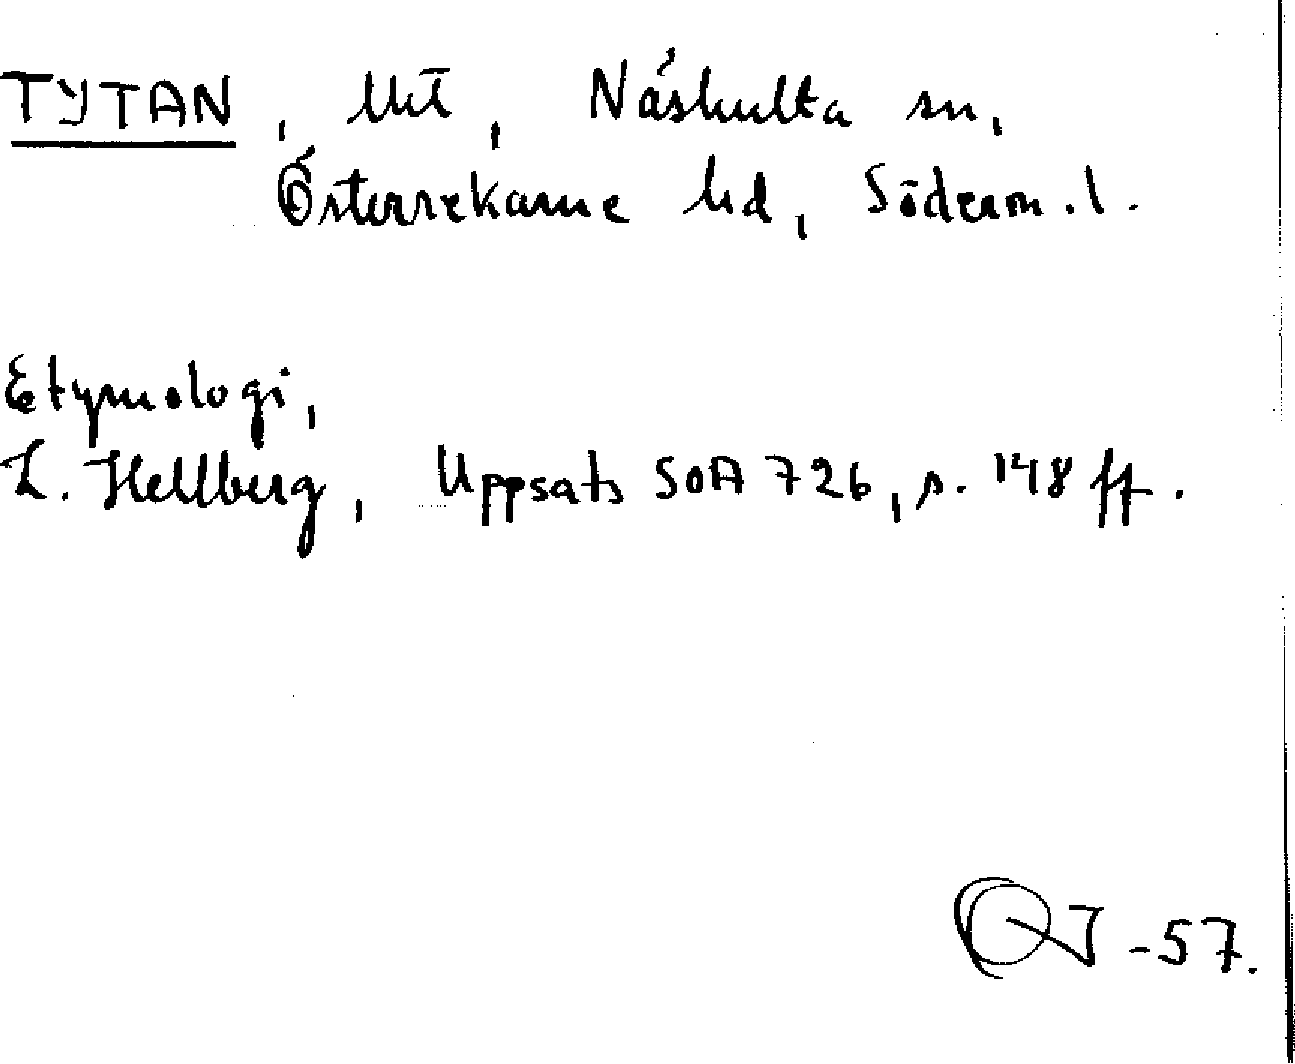 TYTAN, Näshulta sn,
Österrekarne hd, Söderm.l.
Etymologi,
L. Hellberg, Uppsats SOA 726, s. 148 ff.
-57.